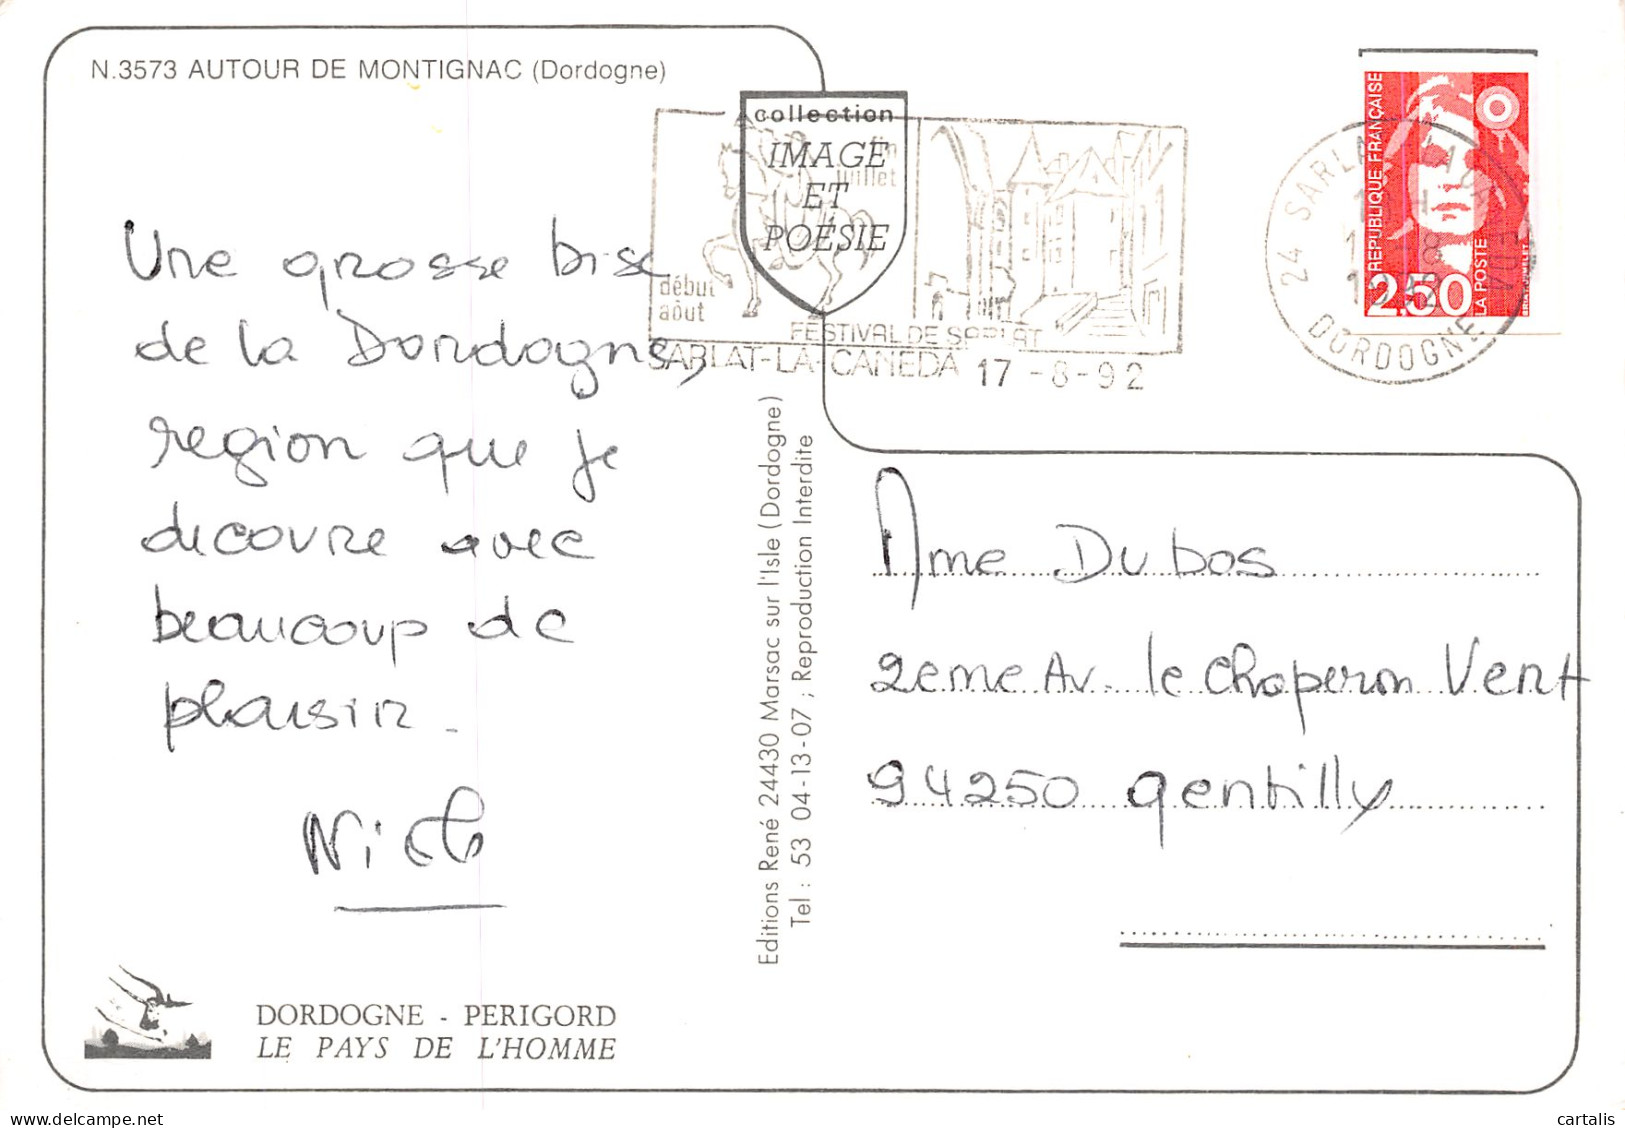 N.3573 AUTOUR DE MONTIGNAC (Dordogne)
collection
IMAGE
ET
POÉSIE
juillet
début
août
FESTIVAL DE SARLAT
SARLAT-LA-CANEDA 17 -8-92
24 SARLAT
DORDOGNE
REPUBLIQUE FRANÇAISE
2,50
LA POSTE
Une grosse bise
de la Dordogne,
region que je
decouvre avec
beaucoup de
plaisir.
Editions René 24430 Marsac sur l'Isle (Dordogne)
Tel : 53 04-13-07 ; Reproduction Interdite
Mme Dubos
2eme Av. le Chaperon Vert
94250 Gentilly
DORDOGNE - PERIGORD
LE PAYS DE L'HOMME
cartalis